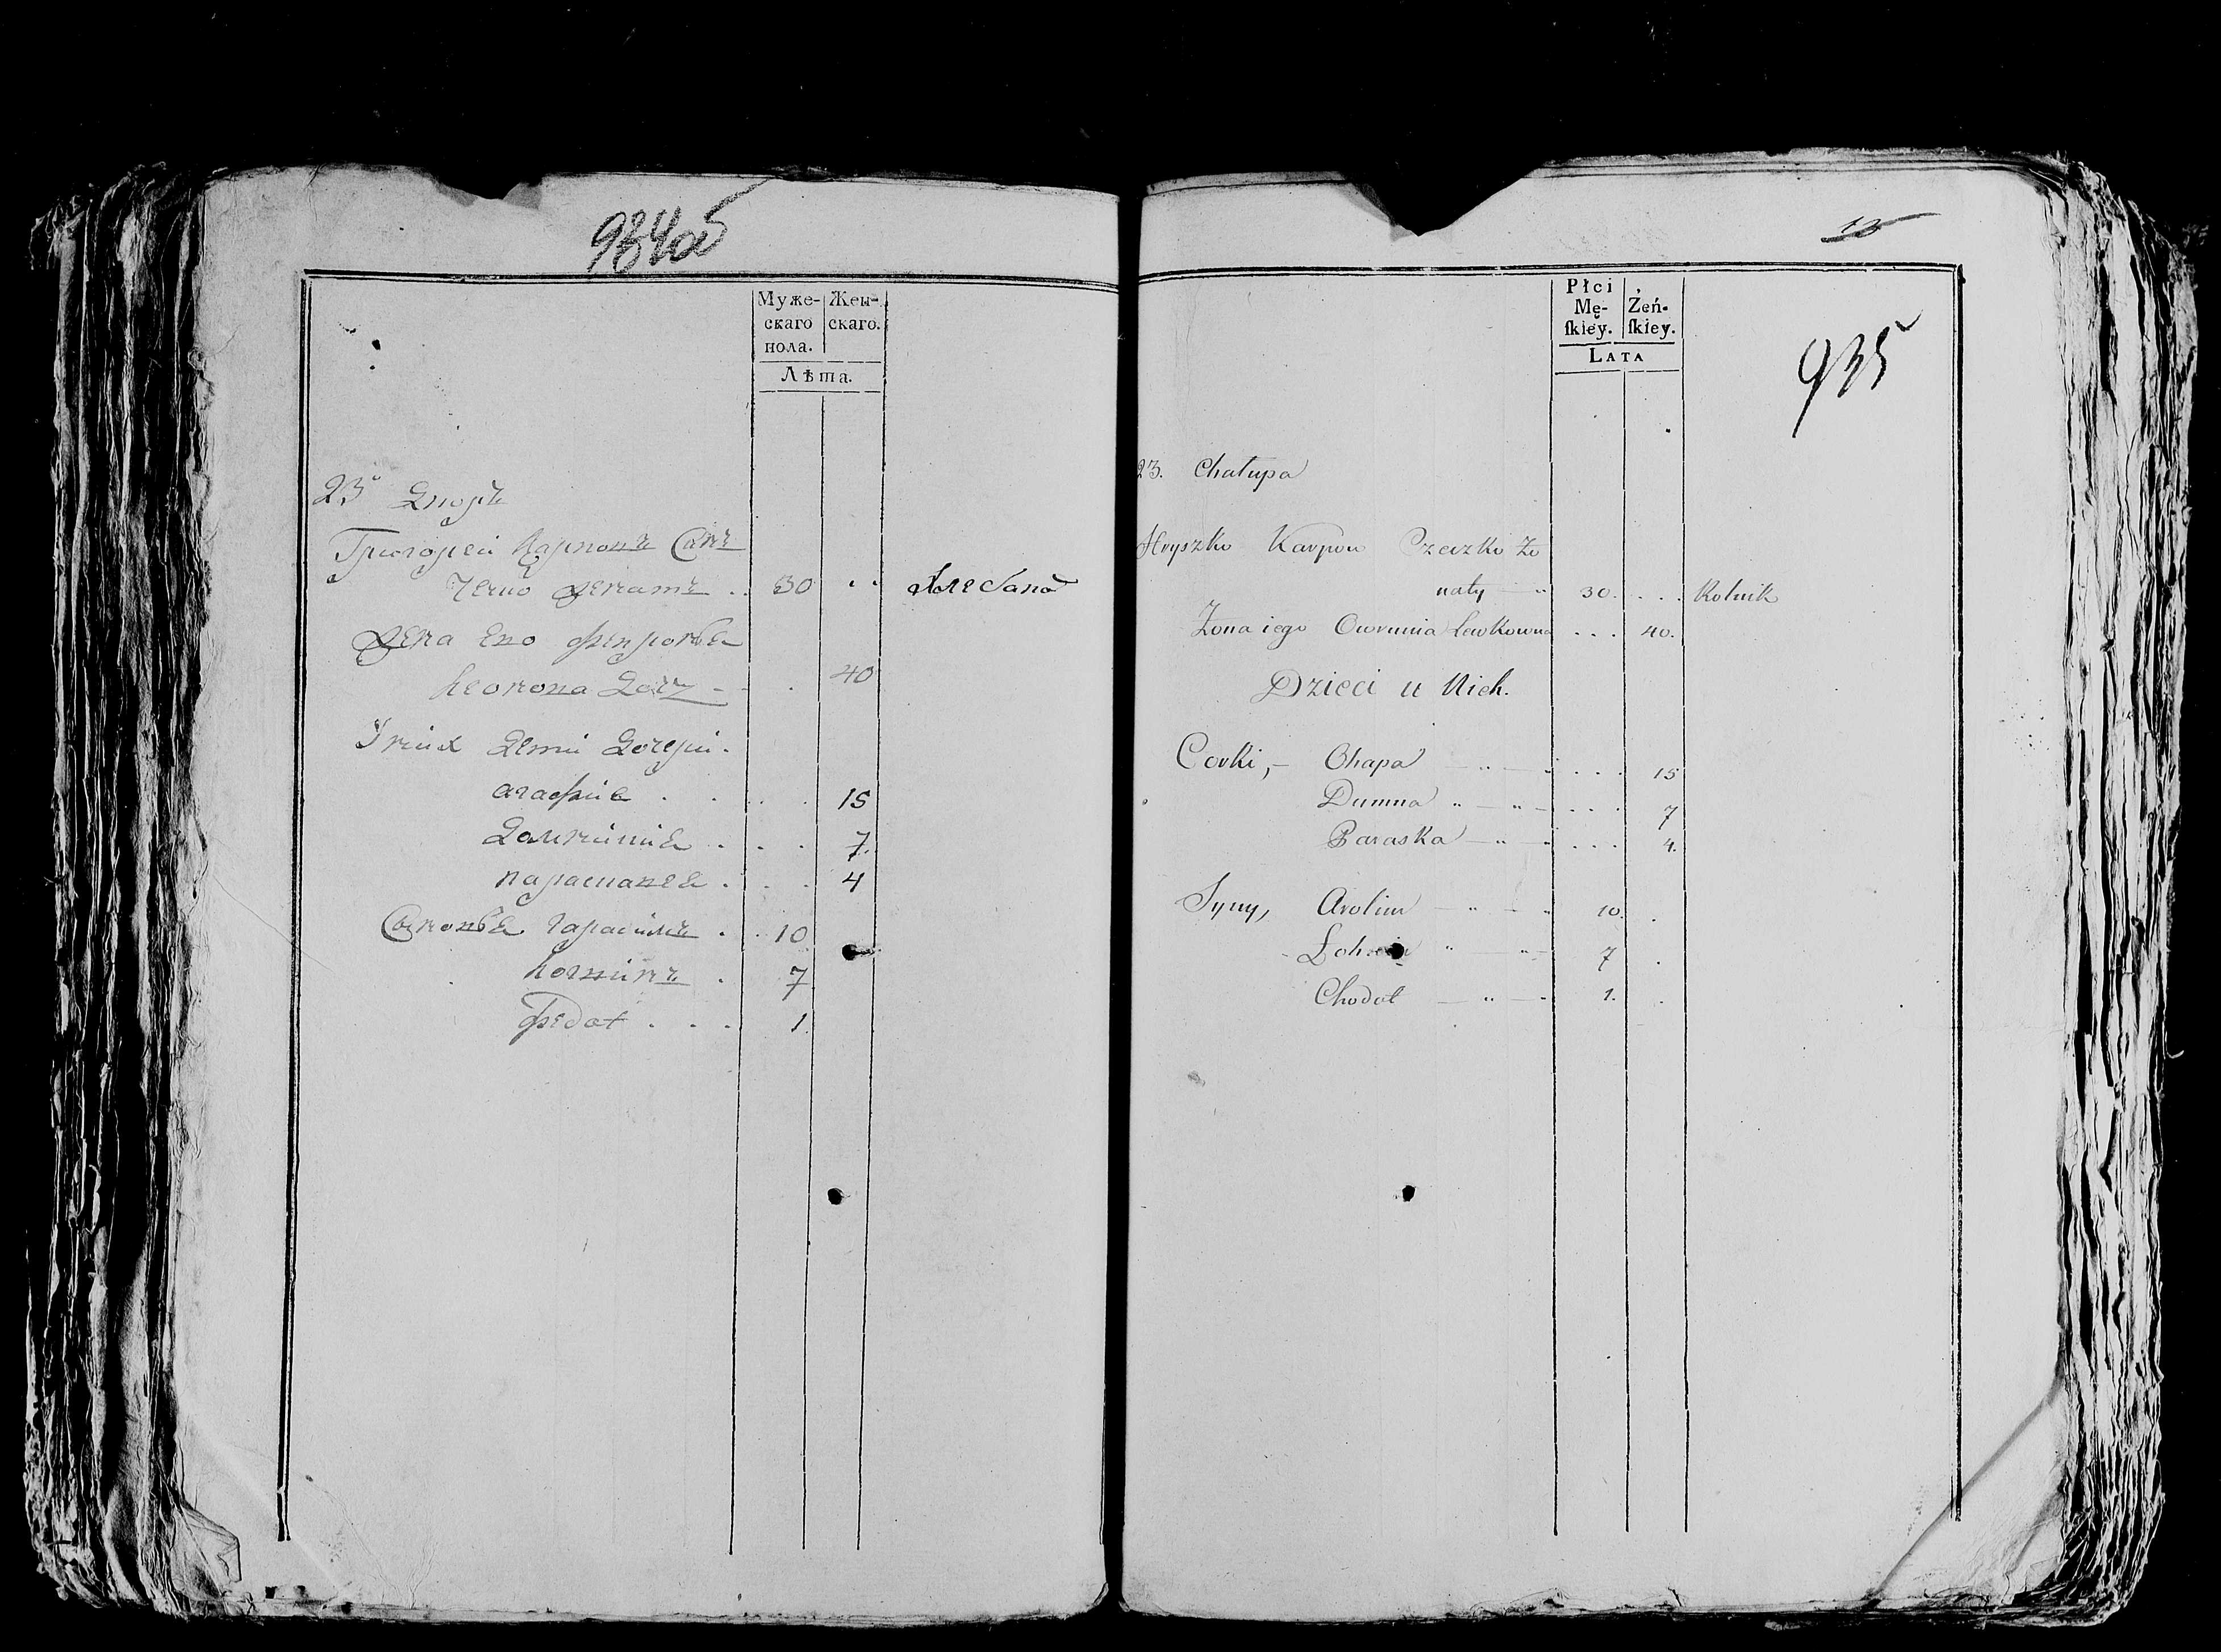 934об
Муже-
скаго
пола.
Жен-
скаго.
Лѣта.
23 Дворъ
Григорей Карповъ Сынъ
женатъ . . 30 " Хлебопа
Жена Его
Леонова Доч - - . 40
У них Дети Дочери.
агафия . . . . 15
Домникия . . . 7.
парасковея . . . 4
Сыновья гарасимъ . . 10
Логвинъ . 7
Федот . . . 1.
15
935
Płci
Mę-
ſkiey.
Żeń-
ſkiey.
LATA
23. Chałupa
Hryszko Karpow Czeczko Żo
naty — " 30. . . . Rolnik
Żona iego Lewkowna . . . 40.
Dzieci u Nich.
Corki, - Ohapa — " — . . . 15
Dumna " — " — . . . 7
Paraska — " — . . . 4.
Syny, Arolim — " — " 10. .
" — " — 7 .
Chodot — " — 1. .